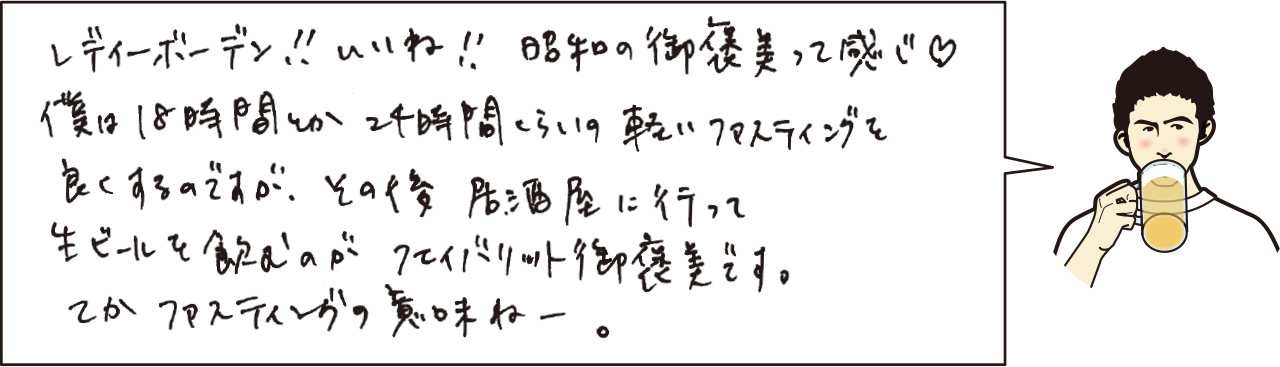 レディーボーデン!! いいね!! 昭和の御褒美って感じ♡
僕は18時間とか24時間くらいの軽いファスティングを
良くするのですが、その後 居酒屋に行って
生ビールを飲むのが フェイバリット御褒美です。
てか ファスティングの意味ねー。